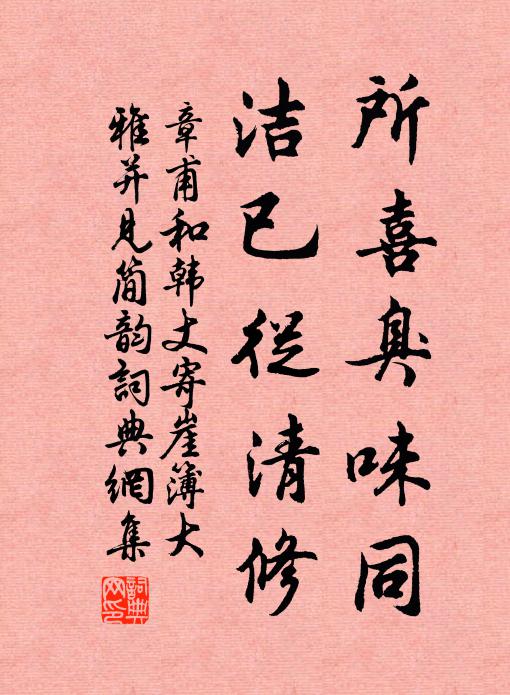 所喜臭味同
洁已從清修
章甫和韩丈寄崖簿大
雅并見简韵詞典網集
詞典網印